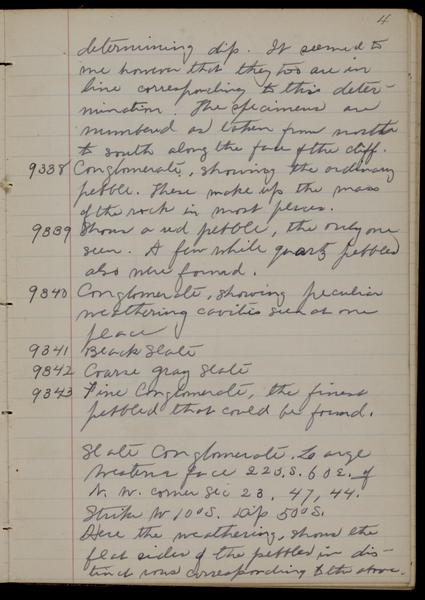 4
determining dip. It seemed to
me however that they too are in
line corresponding to this deter-
mination. The specimens are
numbered as taken from north
to south along the face of the cliff.
9338 Conglomerate, showing the ordinary
pebble. These make up the mass
of the rock in most places.
9339 Shows a red pebble, the only one
seen. A few white quartz pebbles
also were found.
9340 Conglomerate, showing peculiar
weathering cavities seen at one
place
9341 Black Slate
9342 Coarse gray Slate
9343 Fine Conglomerate, the finest
pebbled that could be found.
Slate Conglomerate. Large
Western face 225 S. 60 E. of
N. W. corner Sec 23, 47, 44.
Strike W 10° S. Dip 50° S.
Here the weathering, shows the
flat sides of the pebbles in dis-
tinct rows corresponding to the above.